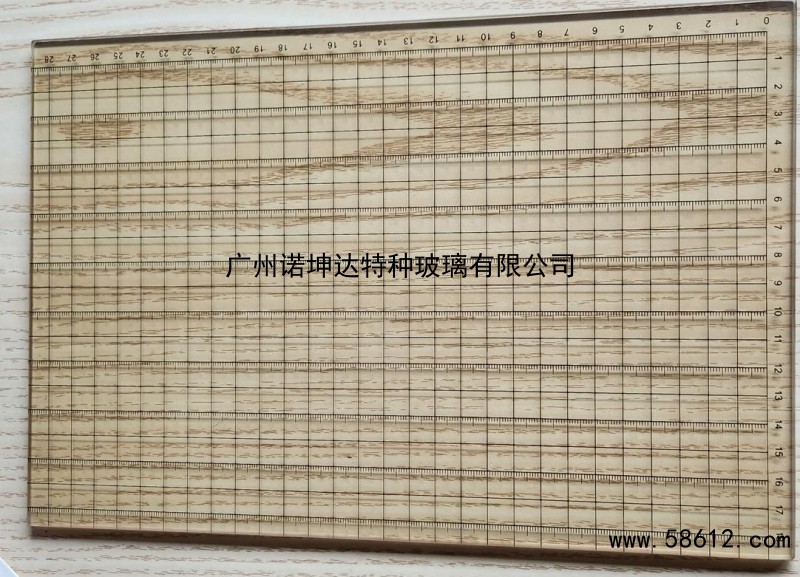 28 27 26 25 24 23 22 21 20 19 18 17 16 15 14 13 12 11 10 9 8 7 6 5 4 3 2 1 0
1
2
3
4
5
6
7
8
9
10
11
12
13
14
15
16
17
广州诺坤达特种玻璃有限公司
www.58612.com